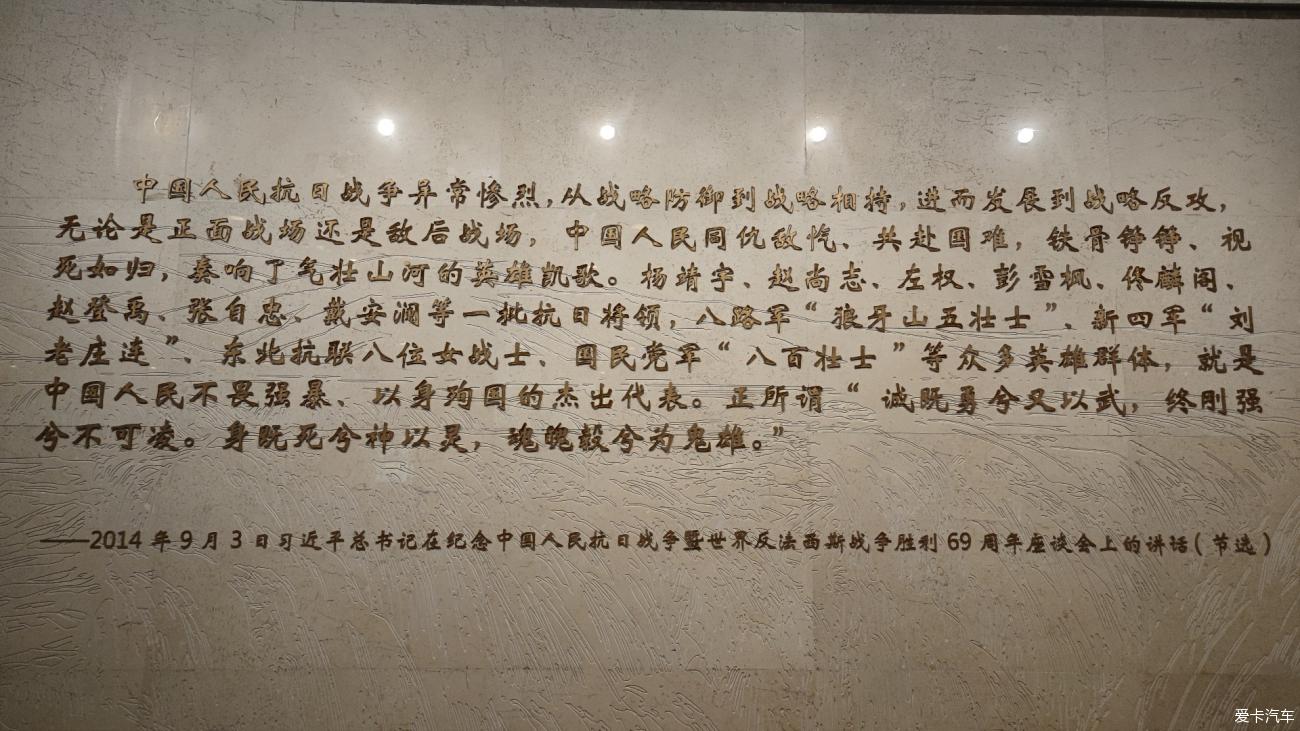 中国人民抗日战争异常惨烈，从战略防御到战略相持，进而发展到战略反攻，
无论是正面战场还是敌后战场，中国人民同仇敌忾、共赴国难，铁骨铮铮、视
死如归，奏响了气壮山河的英雄凯歌。杨靖宇、赵尚志、左权、彭雪枫、佟麟阁、
赵登禹、张自忠、戴安澜等一批抗日将领，八路军“狼牙山五壮士”、新四军“刘
老庄连”、东北抗联八位女战士、国民党军“八百壮士”等众多英雄群体，就是
中国人民不畏强暴、以身殉国的杰出代表。正所谓“诚既勇兮又以武，终刚强
兮不可凌。身既死兮神以灵，魂魄毅兮为鬼雄。”
——2014年9月3日习近平总书记在纪念中国人民抗日战争暨世界反法西斯战争胜利69周年座谈会上的讲话（节选）
爱卡汽车